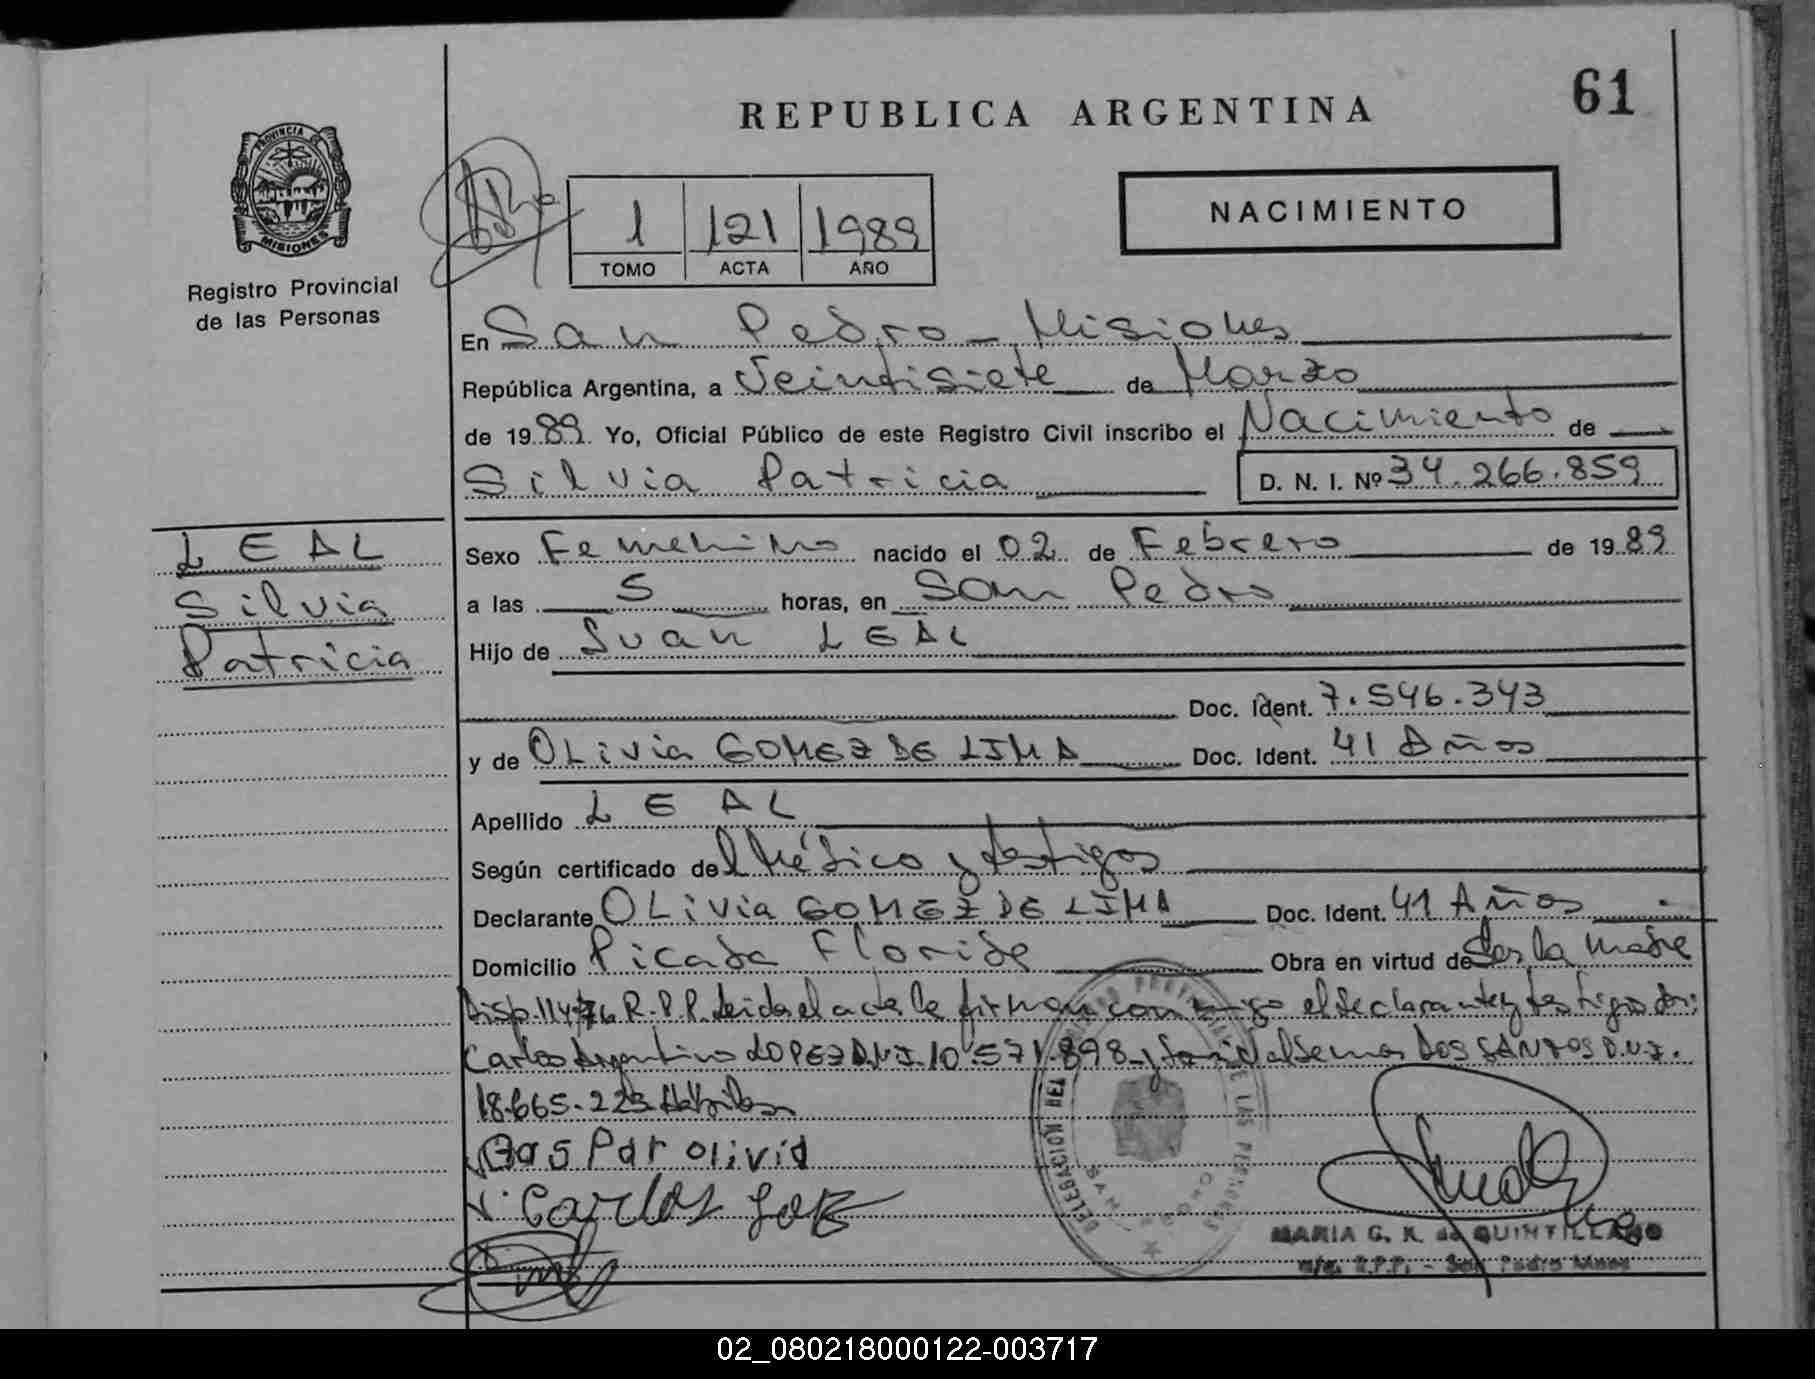 REPUBLICA ARGENTINA
61
PROVINCIA DE MISIONES
Registro Provincial
de las Personas
1 121 1989
TOMO ACTA AÑO
NACIMIENTO
En San Pedro - Misiones
República Argentina, a Veintisiete de Marzo
de 1989. Yo, Oficial Público de este Registro Civil inscribo el Nacimiento de
Silvia Patricia D. N. I. Nº 34.266.859
LEAL
Silvia
Patricia
Sexo Femenino nacido el 02 de Febrero de 1989
a las 5 horas, en San Pedro
Hijo de Juan LEAL
Doc. Ident. 7.546.343
y de OLivia GOMEZ DE LIMA Doc. Ident. 41 Años
Apellido LEAL
Según certificado del Médico y testigos
Declarante OLivia GOMEZ DE LIMA Doc. Ident. 41 Años
Domicilio Picada Floride Obra en virtud de Ser la madre
Disp. 114/76 R.P.P. leida el acta la firman conmigo el declarante y testigos
Carlos Argentino LOPEZ D.N.I. 10.571.898 y DOS SANTOS D.N.I.
18.665.223
Gaspar olivia
Carlos
DELEGACION DEL REGISTRO PROVINCIAL DE LAS PERSONAS
SAN PEDRO
MARIA G. K. de QUINTILLANO
R.P.P. - San Pedro Mnes
02_080218000122-003717